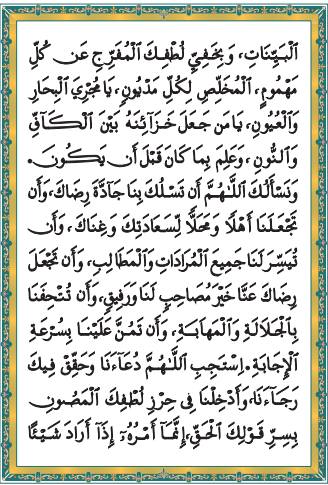 الْبَيِّنَاتِ، وَبِخَفِيِّ لُطْفِكَ الْمُفَرِّجِ عَنْ كُلِّ
مَهْمُومٍ، الْمُخَلِّصِ لِكُلِّ مَدْيُونٍ، يَا مُجْرِيَ الْبِحَارِ
وَالْعُيُونِ، يَا مَنْ جَعَلَ خَزَآئِنَهُ بَيْنَ الْكَافِ
وَالنُّونِ، وَعَلِمَ بِمَا كَانَ قَبْلَ أَنْ يَكُونَ.
وَنَسْأَلُكَ اللَّهُمَّ أَنْ تَسْلُكَ بِنَا جَآدَّةَ رِضَاكَ، وَأَنْ
تَجْعَلَنَا أَهْلًا وَمَحَلًّا لِسَعَادَتِكَ وَغِنَاكَ، وَأَنْ
تُيَسِّرَ لَنَا جَمِيعَ الْمُرَادَاتِ وَالْمَطَالِبِ، وَأَنْ تَجْعَلَ
رِضَاكَ عَنَّا خَيْرَ مُصَاحِبٍ لَنَا وَرَفِيقٍ، وَأَنْ تُتْحِفَنَا
بِالْجَلَالَةِ وَالْمَهَابَةِ، وَأَنْ تَمُنَّ عَلَيْنَا بِسُرْعَةِ
الْإِجَابَةِ. اِسْتَجِبِ اللَّهُمَّ دُعَآءَنَا وَحَقِّقْ فِيكَ
رَجَآءَنَا، وَأَدْخِلْنَا فِى حِرْزِ لُطْفِكَ الْمَصُونِ
بِسِرِّ قَوْلِكَ الْحَقِّ، إِنَّمَآ أَمْرُهُۥٓ إِذَآ أَرَادَ شَيْـًٔا